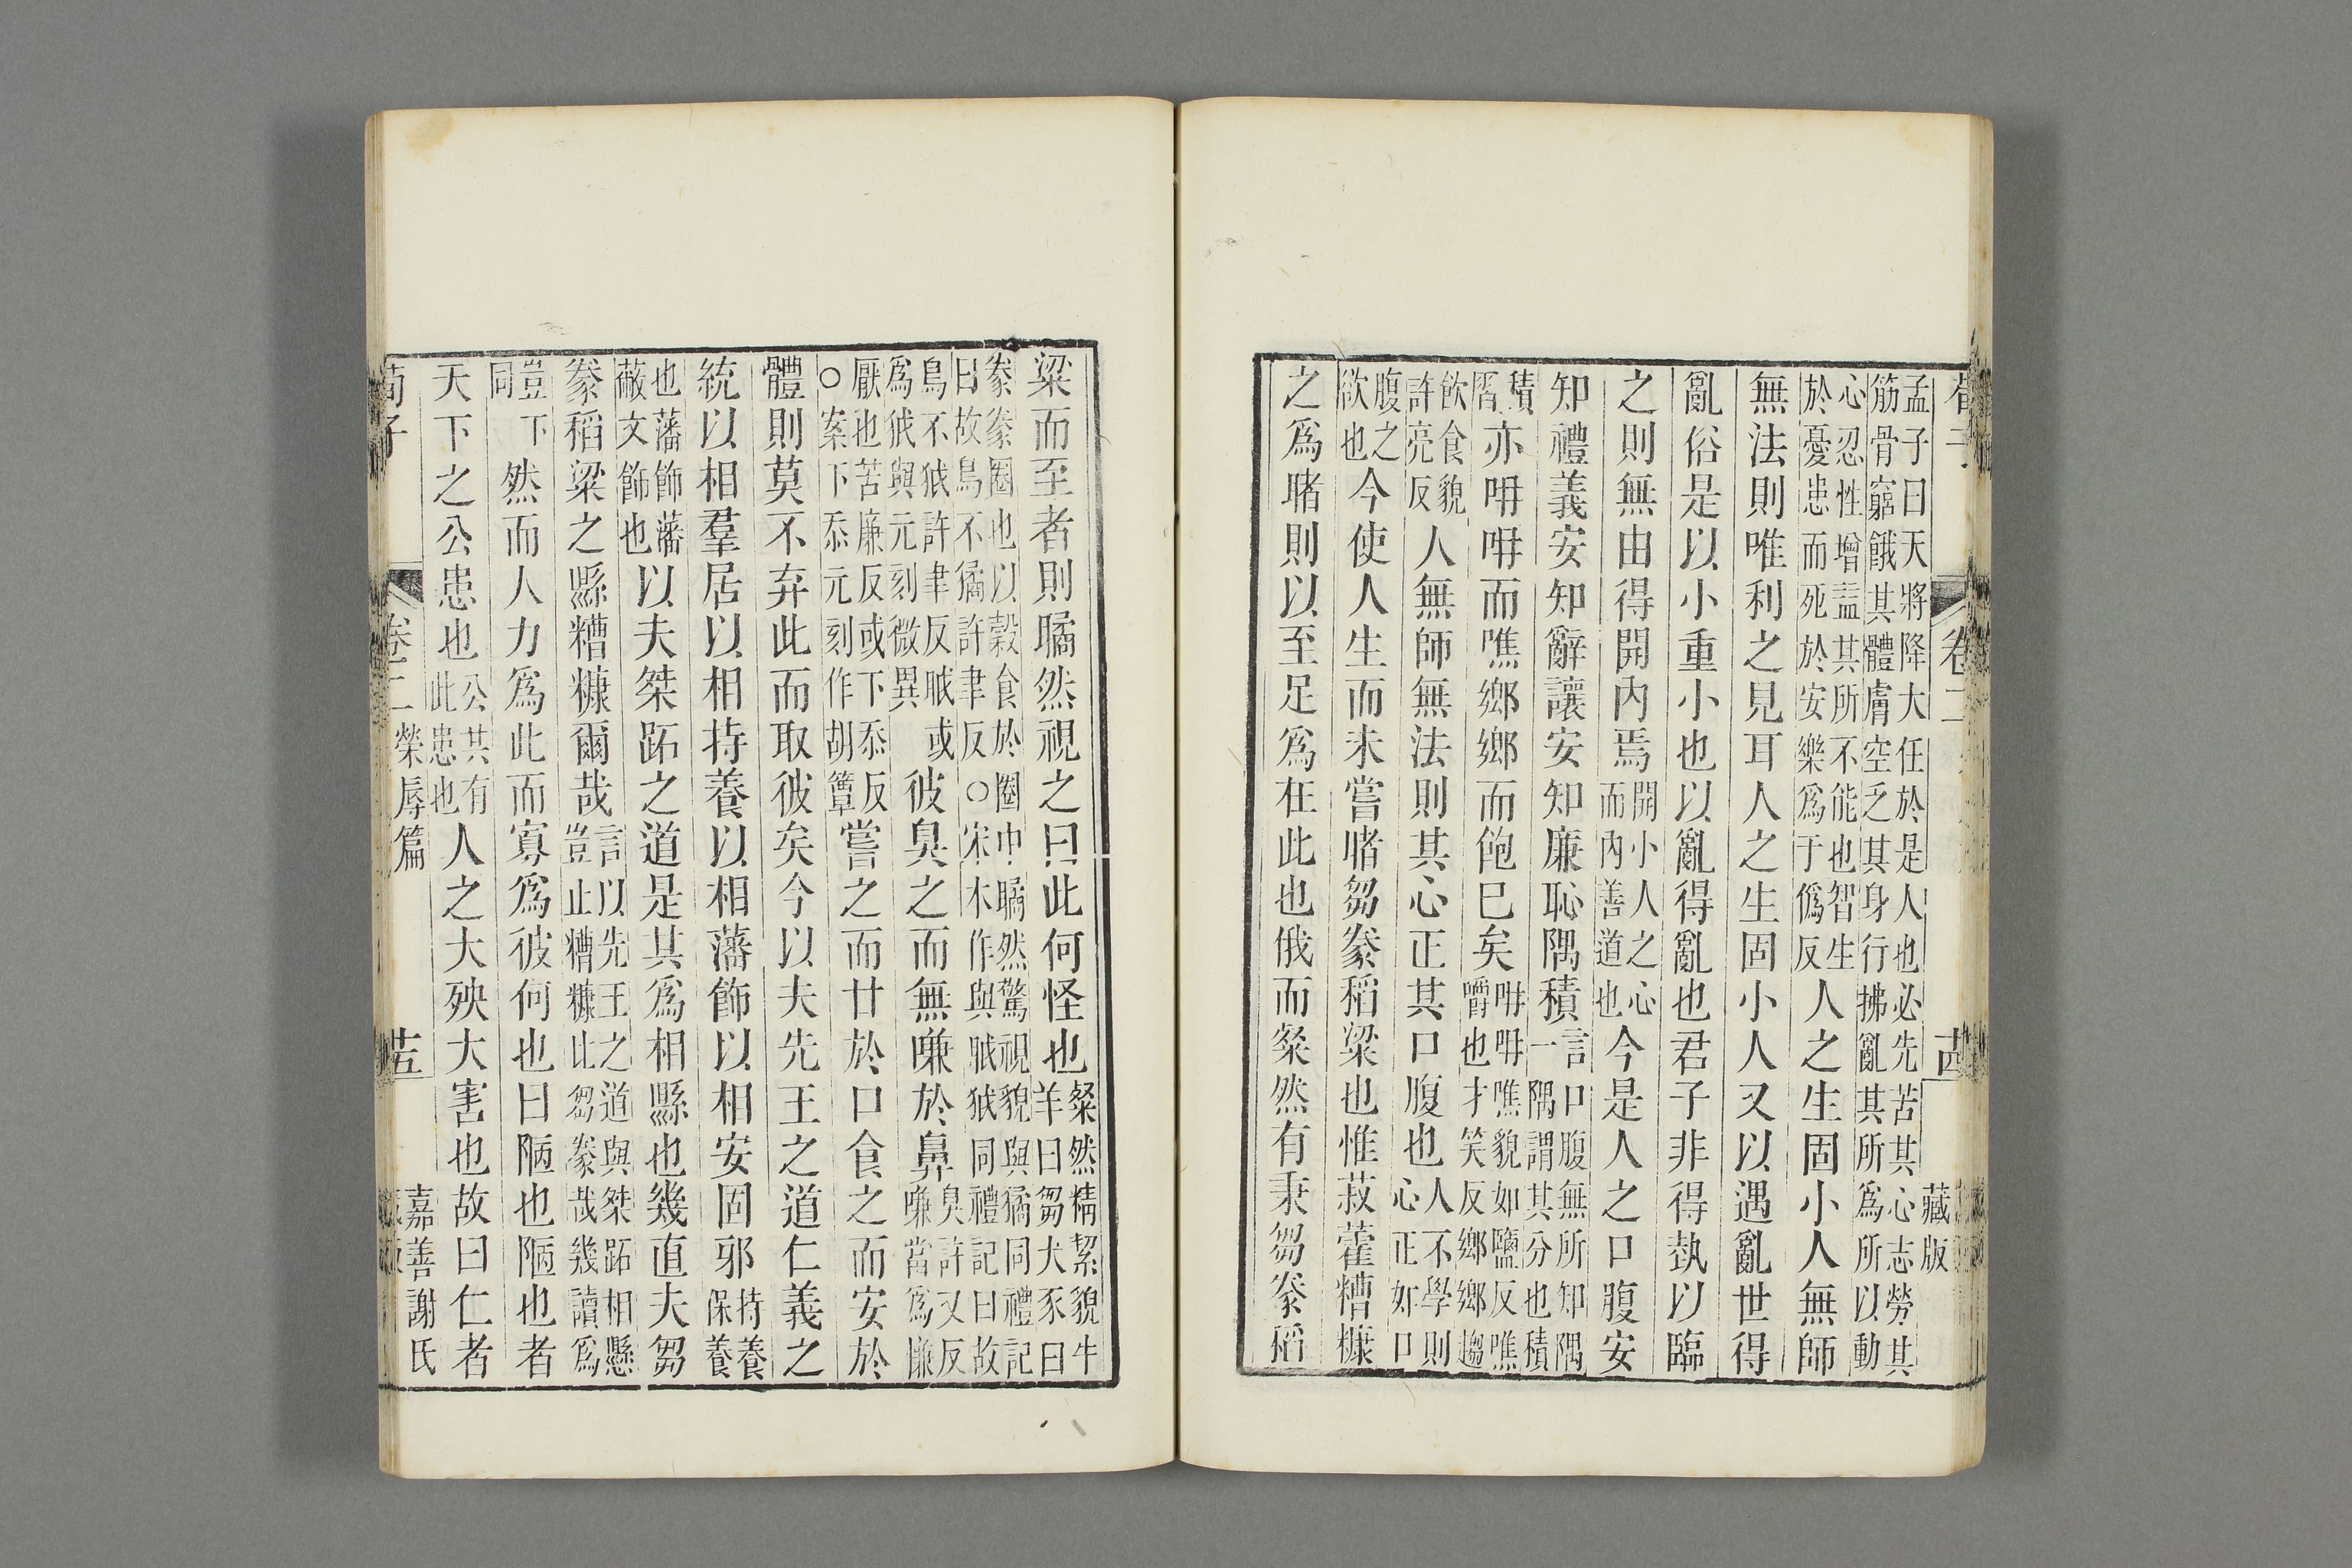 荀子 卷二 十四 藏版
孟子曰天將降大任於是人也必先苦其心志勞其
筋骨窮餓其體膚空乏其身行拂亂其所爲所以動
心忍性增益其所不能也智生於憂患而死於安樂爲于僞反人之生固小人無師
無法則唯利之見耳人之生固小人又以遇亂世得
亂俗是以小重小也以亂得亂也君子非得埶以臨
之則無由得開內焉開小人之心而內善道也今是人之口腹安
知禮義安知辭讓安知廉恥隅積言口腹無所知隅一隅謂其分也積
積習亦呥呥而噍鄉鄉而飽已矣呥呥噍貌如鹽反噍嚼也才笑反鄉鄉趨
飲食貌許亮反人無師無法則其心正其口腹也人不學則心正如口
腹之欲也今使人生而未嘗睹芻豢稻粱也惟菽藿糟糠
之爲睹則以至足爲在此也俄而粲然有秉芻豢稻
粱而至者則瞲然視之曰此何怪也粲然精絜貌牛羊曰芻犬豕曰
豢豢圈也以穀食於圈中瞲然驚視貌與獝同禮記曰故鳥不獝許聿反○宋本作與㖑狘同禮記曰故
鳥不狘許聿反㖑或爲狘與元刻微異彼臭之而無嗛於鼻臭許又反嗛當爲慊
厭也苦廉反或下忝反○案下忝元刻作胡簟嘗之而甘於口食之而安於
體則莫不弃此而取彼矣今以夫先王之道仁義之
統以相羣居以相持養以相藩飾以相安固邪持養保養
也藩飾藩蔽文飾也以夫桀跖之道是其爲相縣也幾直夫芻
豢稻粱之縣糟糠爾哉言以先王之道與桀跖相懸豈止糟糠比芻豢哉幾讀爲
豈下同然而人力爲此而寡爲彼何也曰陋也陋也者
天下之公患也公共有此患也人之大殃大害也故曰仁者
荀子 卷二 榮辱篇 十五 嘉善謝氏藏版